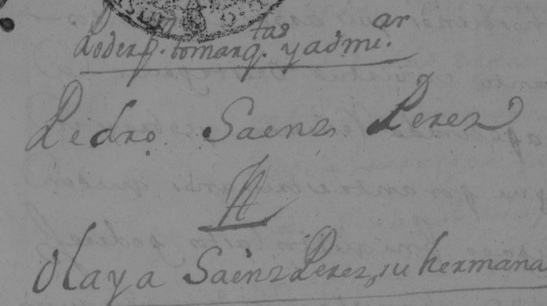 Poder p. tomar q.tas y adm.ar
Pedro Saenz Perez
A
Olaya Saenz Perez, su hermana